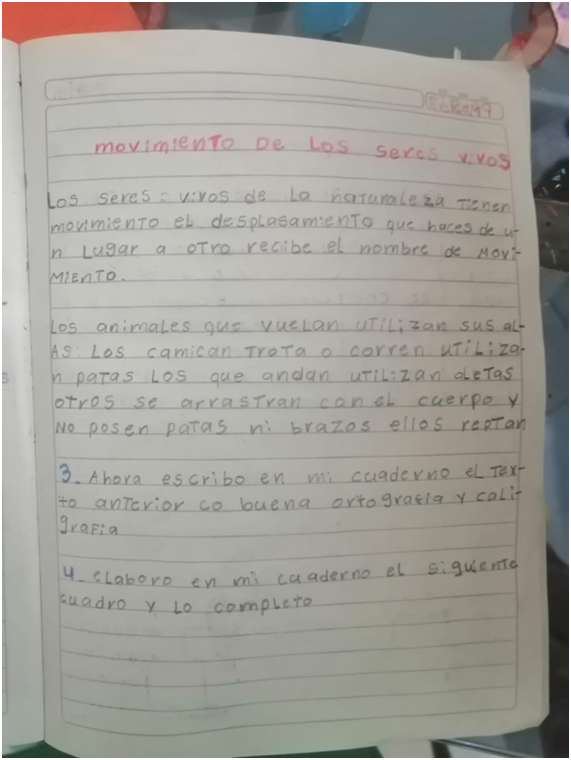 movimiento De Los seres vivos
Los seres: vivos de La naturaleza Tienen
movimiento el desplasamiento que haces de u-
n Lugar a otro recibe el nombre de Movi-
Miento.
Los animales que vuelan utilizan sus al-
As: Los camican Trota o corren utiliza-
n patas Los que andan utilizan aletas
otros se arrastran con el cuerpo y
No posen patas ni brazos ellos reptan
3. Ahora escribo en mi cuaderno el Tex-
to anterior co buena ortografia y cali-
grafia
4. elaboro en mi cuaderno el siguiente
cuadro y Lo completo